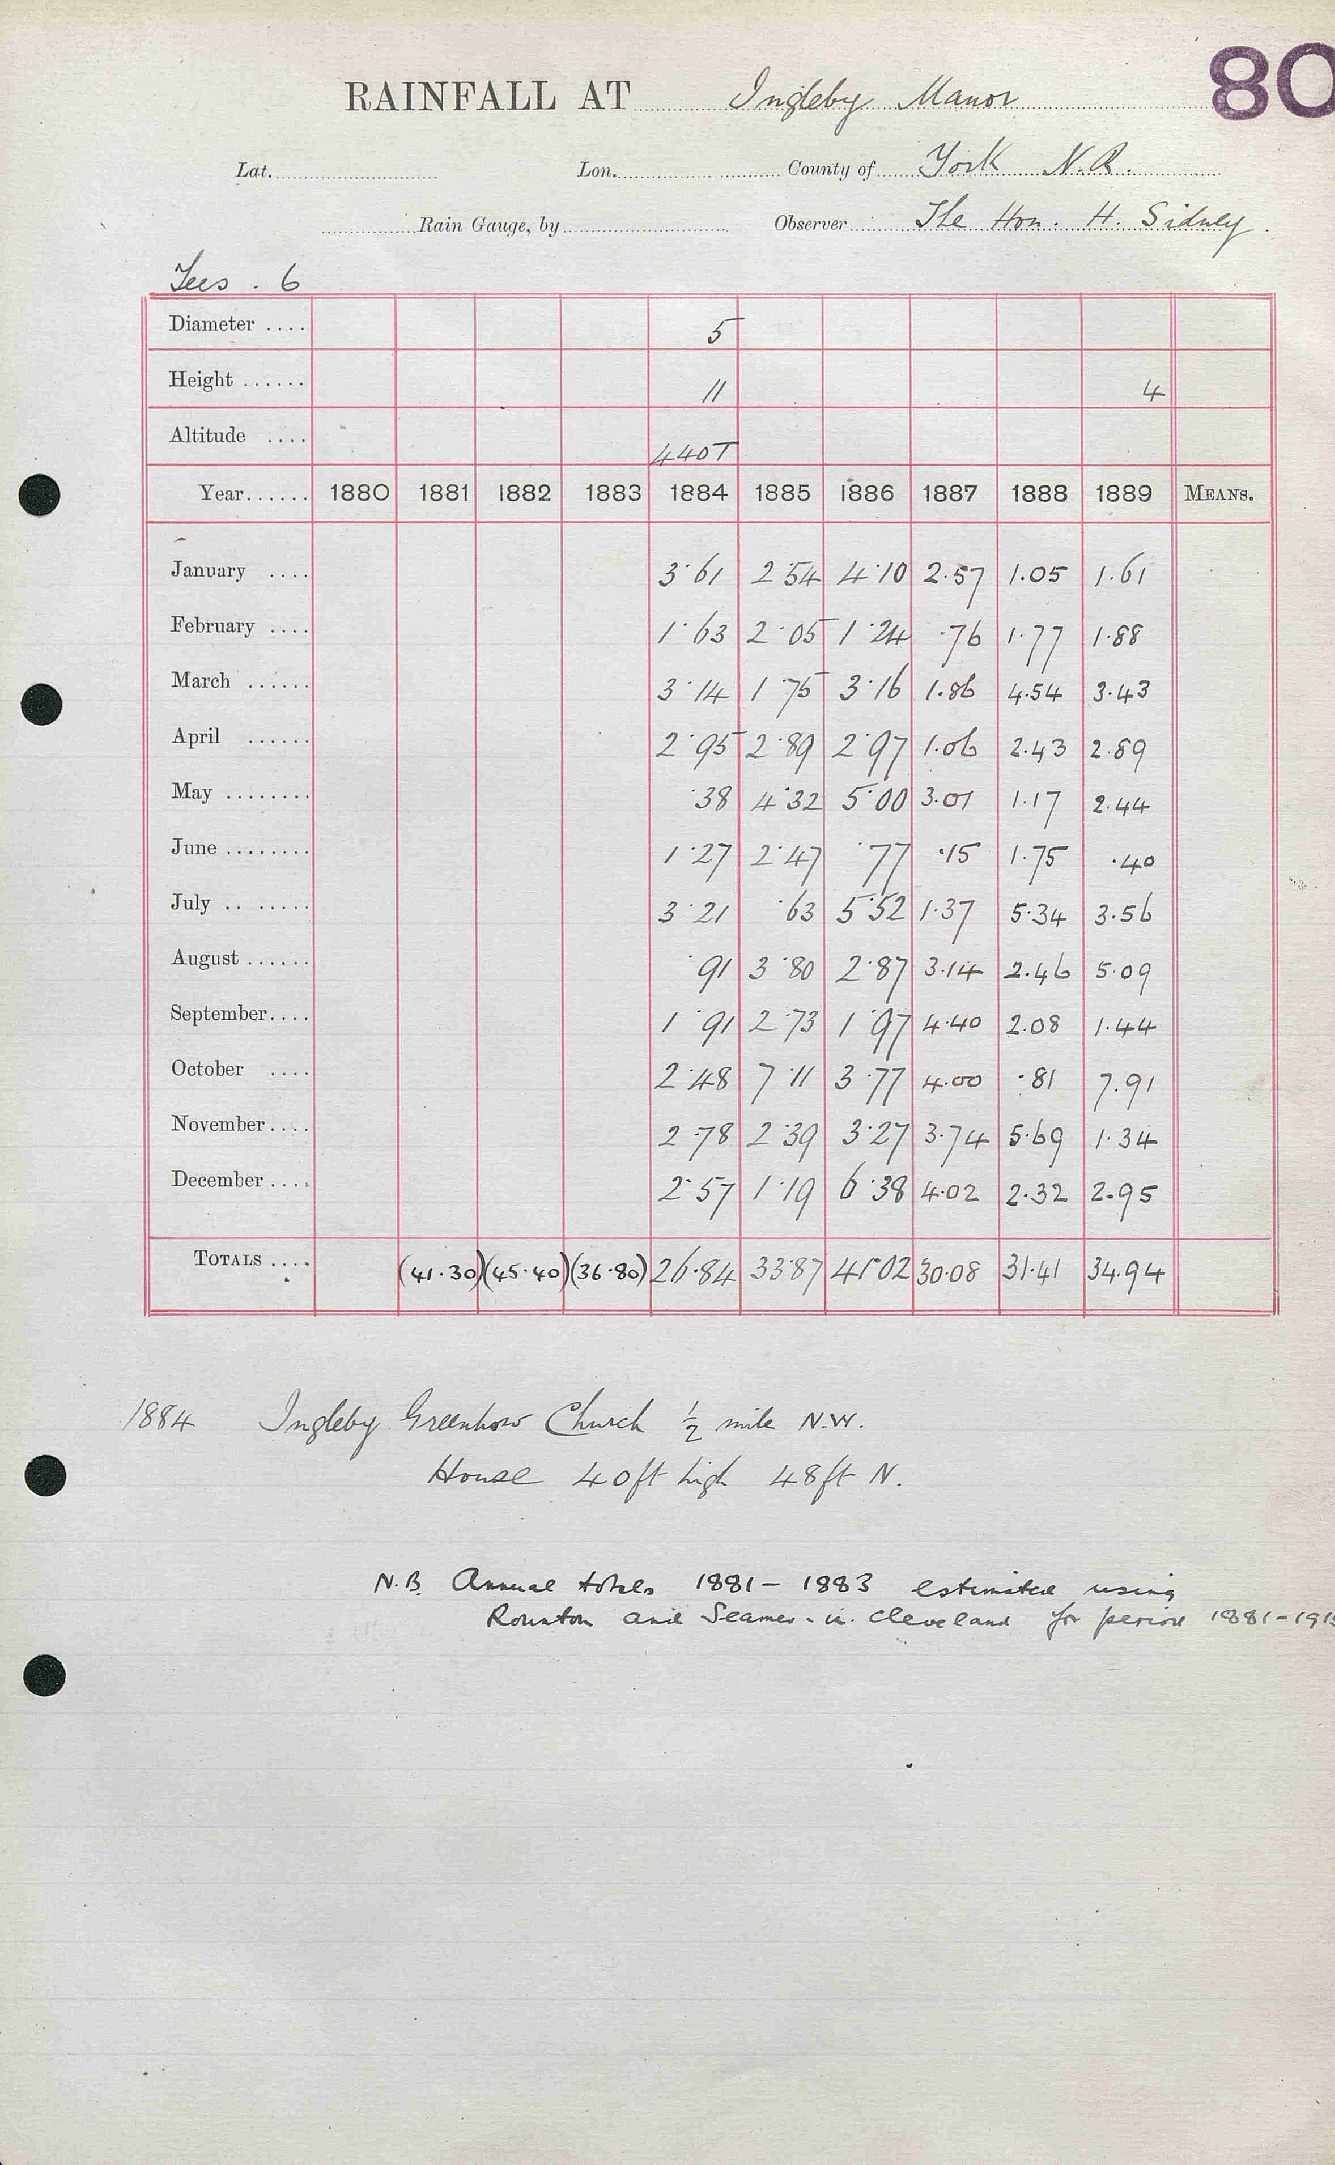 80
RAINFALL AT Ingleby Manor
Lat. Lon. County of York N.R.
Rain Gauge, by Observer The Hon. H. Sidney.
Tees . 6
Diameter .... 5
Height ...... 11 4
Altitude .... 440T
Year...... 1880 1881 1882 1883 1884 1885 1886 1887 1888 1889 MEANS.
January .... 3·61 2·54 4·10 2·57 1·05 1·61
February .... 1·63 2·05 1·24 ·76 1·77 1·88
March ...... 3·14 1·75 3·16 1·86 4·54 3·43
April ...... 2·95 2·89 2·97 1·06 2·43 2·89
May ........ ·38 4·32 5·00 3·01 1·17 2·44
June ........ 1·27 2·47 ·77 ·15 1·75 ·40
July .. ..... 3·21 ·63 5·52 1·37 5·34 3·56
August ...... ·91 3·80 2·87 3·14 2·46 5·09
September.... 1·91 2·73 1·97 4·40 2·08 1·44
October .... 2·48 7·11 3·77 4·00 ·81 7·91
November.... 2·78 2·39 3·27 3·74 5·69 1·34
December.... 2·57 1·19 6·38 4·02 2·32 2·95
TOTALS .... (41·30) (45·40) (36·80) 26·84 33·87 41·02 30·08 31·41 34·94
1884 Ingleby Greenhow Church ½ mile N.W.
House 40ft high 48ft N.
N.B. Annual totals 1881 – 1883 estimated using
Rounton and Seamer-in-Cleveland for period 1881-191